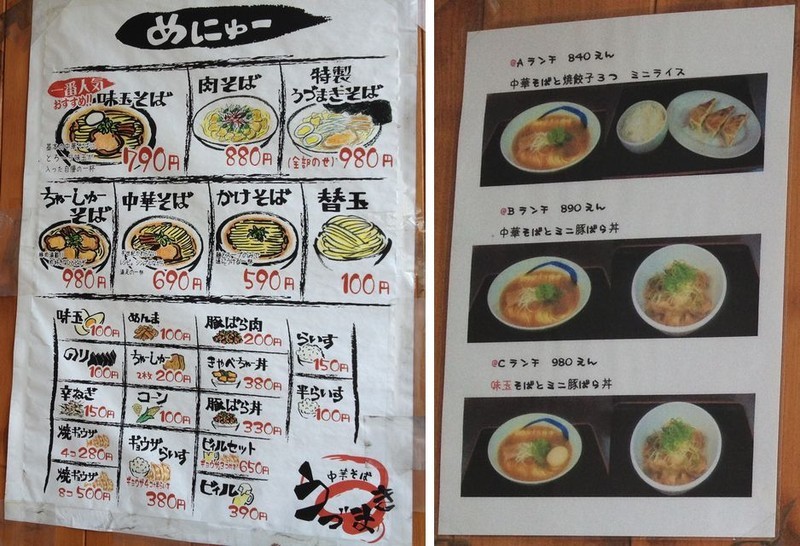 めにゅー
一番人気
おすすめ!!
味玉そば
790円
肉そば
880円
特製
うづまきそば
(全部のせ) 980円
ちゃーしゅー
そば
980円
中華そば
690円
かけそば
590円
替玉
100円
味玉
100円
めんま
100円
豚ばら肉
200円
らいす
150円
のり
100円
ちゃーしゅー
2枚 200円
きゃべちゃー丼
380円
半らいす
100円
辛ねぎ
150円
コーン
100円
豚ばら丼
330円
焼ギョウザ
4コ 280円
ギョウザ
らいす
380円
ビィルセット
650円
焼ギョウザ
8コ 500円
ビィル
390円
中華そば
うづまき
@Aランチ 840えん
中華そばと焼餃子3つ ミニライス
@Bランチ 890えん
中華そばとミニ豚ばら丼
@Cランチ 980えん
味玉そばとミニ豚ばら丼